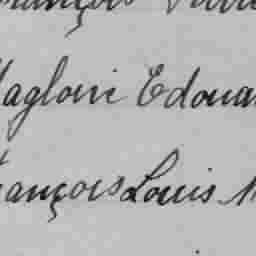 François
Magloire Edouar
François Louis M